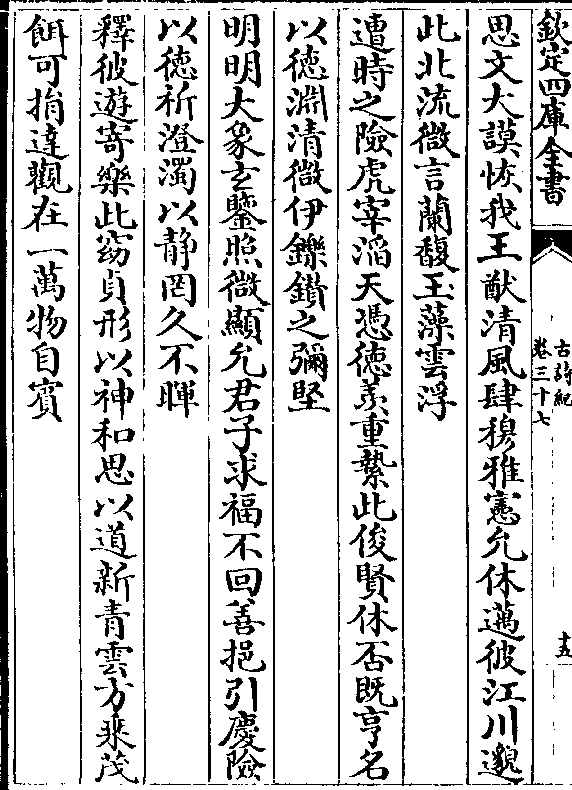 欽定四庫全書
古詩紀
卷三十七
十五
思文大謨恢我王猷清風肆穆雅憲允休邁彼江川邈
此北流微言蘭馥玉藻雲浮
遭時之險虎宰滔天憑徳羨重縶此俊賢休否既亨名
以徳淵清微伊鑠鑚之彌堅
明明大象𤣥鑒照微顯允君子求福不回善挹引慶險
以徳祈澄濁以静罔久不暉
釋彼遊寄樂此窈貞形以神和思以道新青雲方乗茂
餌可捐達觀在一萬物自賓